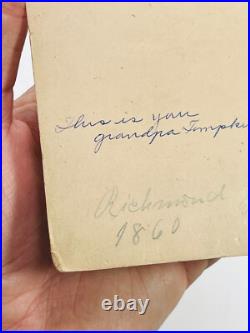 This is you
grandpa Tompki
Richmond
1860